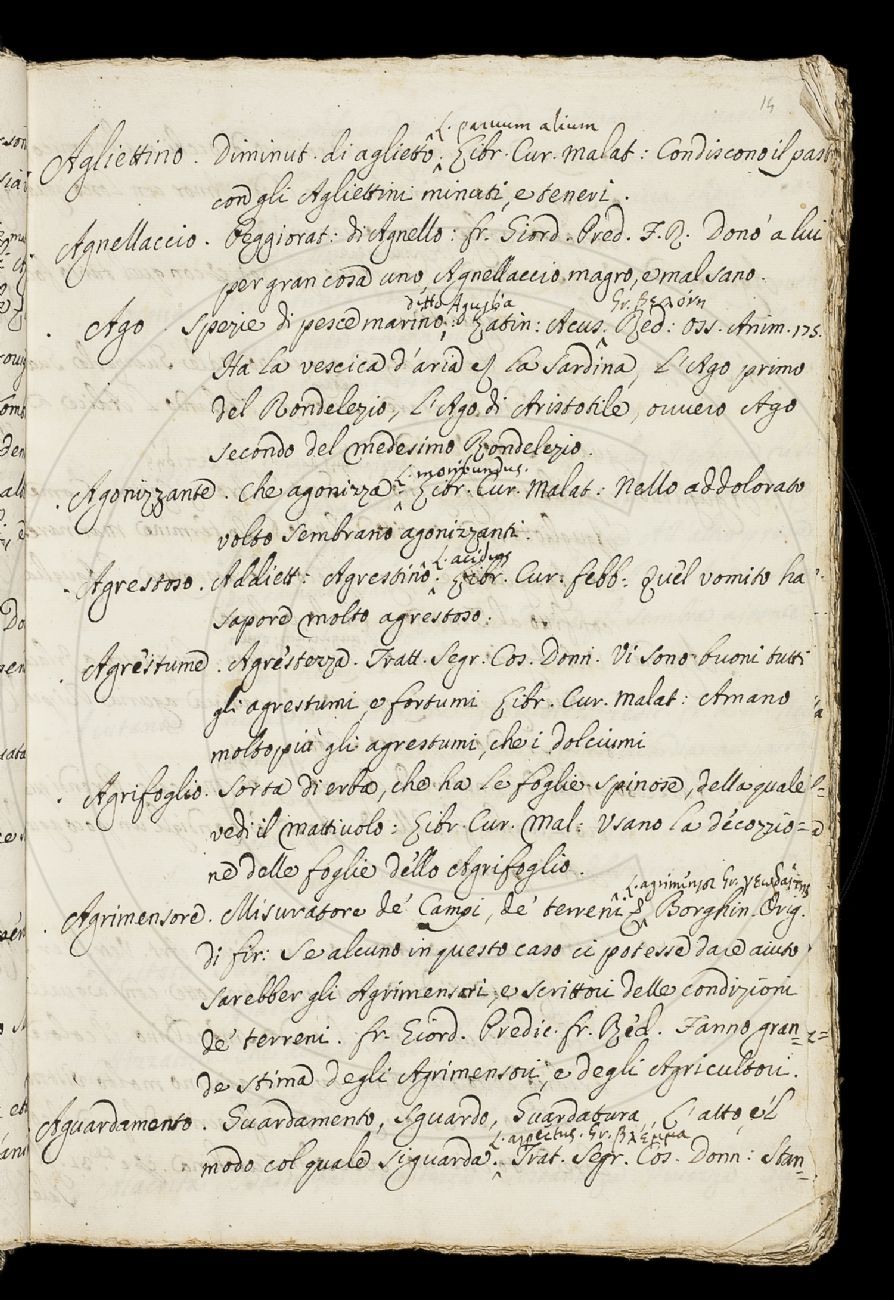 14
L. parvum alium
Agliettino. Diminut. di aglietto. Libr. Cur. Malat: Condiscono il past
con gli Agliettini minuti, e teneri.
Agnellaccio. Peggiorat: di Agnello: fr. Giord. Pred. F. R. Donò a lui
per gran cosa uno Agnellaccio magro, e mal sano.
detto Aguglia Gr. βελόνη
Ago Spezie di pesce marino; Latin: Acus. Red: Oss. Anim. 175.
Ha la vescica d'aria la Sardina, L'Ago primo
del Rondelezio, L'Ago di Aristotile, ovvero Ago
secondo del medesimo Rondelezio.
L. moribundus.
Agonizzante. Che agonizza. Libr. Cur. Malat: Nello addolorato
volto sembrano agonizzanti.
L. acidus
Agrestoso. Addiett: Agrestino. Libr. Cur: febb: Quel vomito ha
sapore molto agrestoso:
Agrestume. Agrestezza. Tratt. Segr. Cos. Donn. Vi sono buoni tutti
gli agrestumi, e fortumi Libr. Cur. Malat: Amano
molto più gli agrestumi, che i dolciumi
Agrifoglio. Sorta di erba, che ha le foglie spinose, della quale
vedi il Mattiuolo: Libr. Cur. Mal: Usano la decozzio=
ne delle foglie dello Agrifoglio.
L. agrimensor Gr. γεωδαίτης
Agrimensore. Misuratore de' Campi, de' terreni. Borghin. Orig.
di fir: Se alcuno in questo caso ci potesse dare aiuto
sarebber gli Agrimensori, e scrittori delle condizioni
de' terreni. fr. Giord. Predic. fr. Red. Fanno gran=
de stima degli Agrimensori, e degli Agricultori.
Aguardamento. Guardamento, sguardo, Guardatura, L'atto, e'l
L. aspectus. Gr. βλέμμα
modo col quale si guarda. Trat. Segr. Cos. Donn: Stan=